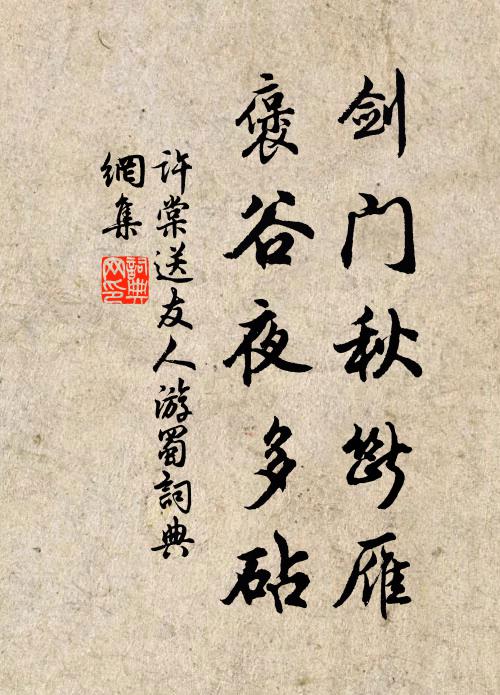 剑门秋断雁
褒谷夜多砧
许棠送友人游蜀词典
網集
詞典網印